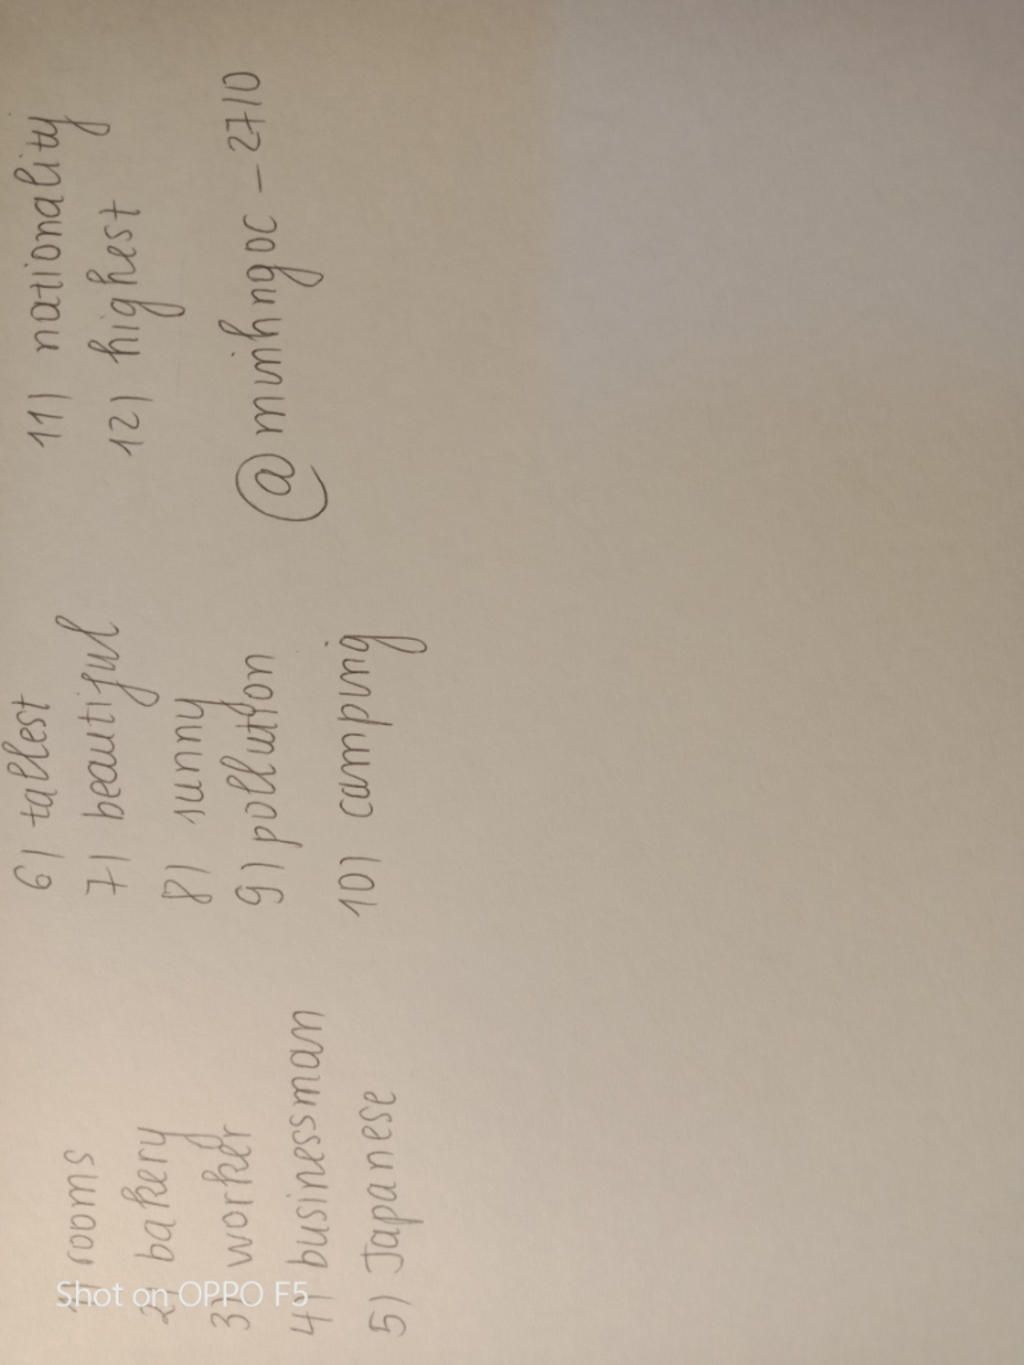 1) rooms
2) bakery
3) worker
4) businessman
5) Japanese
6) tallest
7) beautiful
8) sunny
9) pollution
10) camping
11) nationality
12) highest
@minhngoc - 2710
Shot on OPPO F5